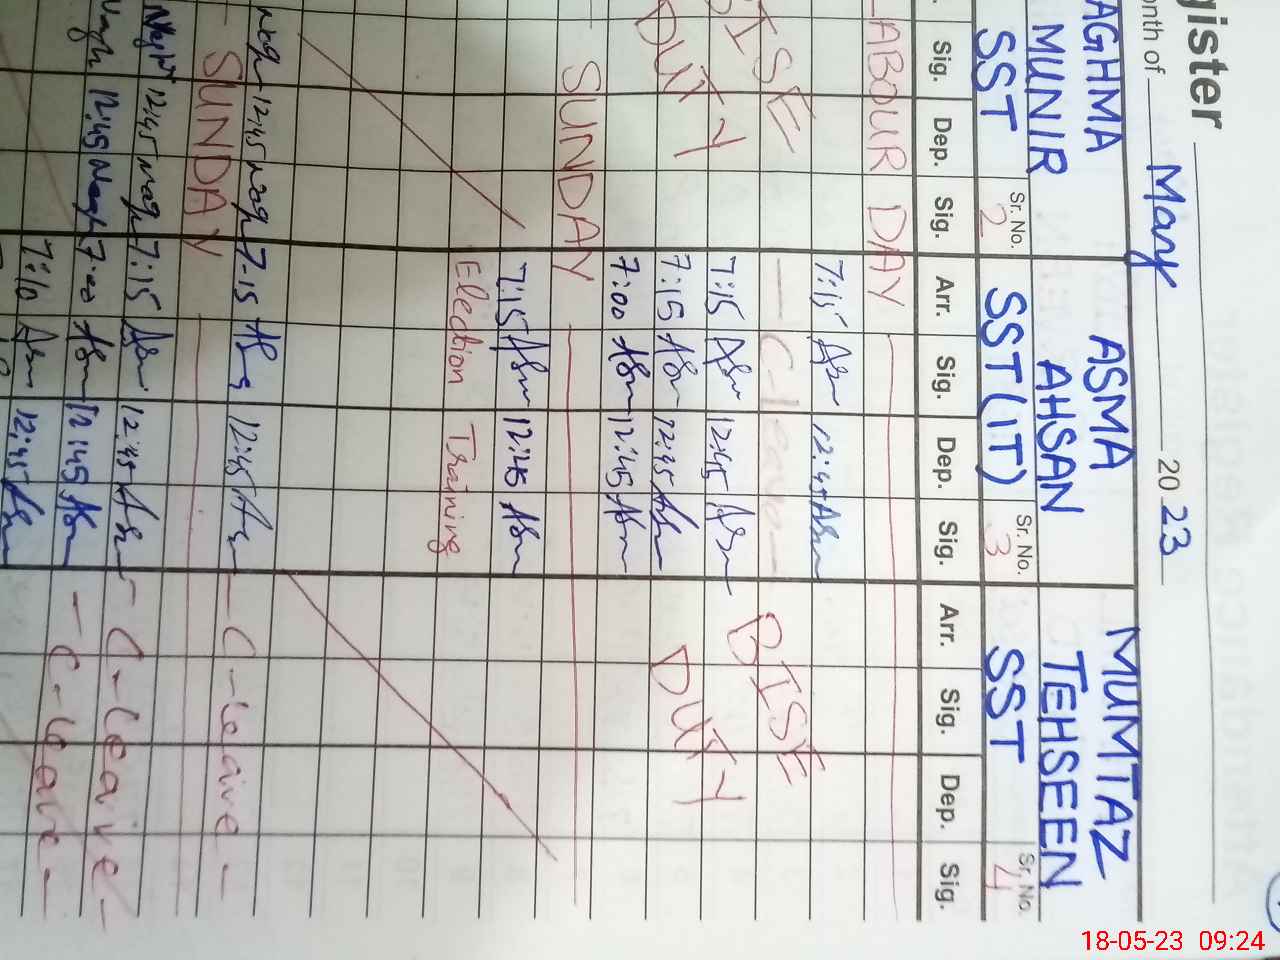 gister
onth of May 2023
AGHMA MUNIR SST
Sr. No. 2
ASMA AHSAN SST (IT)
Sr. No. 3
MUMTAZ TEHSEEN SST
Sr. No. 4
Sig. Dep. Sig. Arr. Sig. Dep. Sig. Arr. Sig. Dep. Sig.
LABOUR DAY
7:15 12:45
BISE — C-leave — BISE
DUTY 7:15 12:45 DUTY
7:15 12:45
7:00 12:45
SUNDAY
7:15 12:45
Election Training
12:45 7-15 12:45 — C-leave —
SUNDAY
12:45 7:15 12:45 — C-leave —
12:45 7:00 12:45 — C-leave —
7:10 12:45
18-05-23 09:24